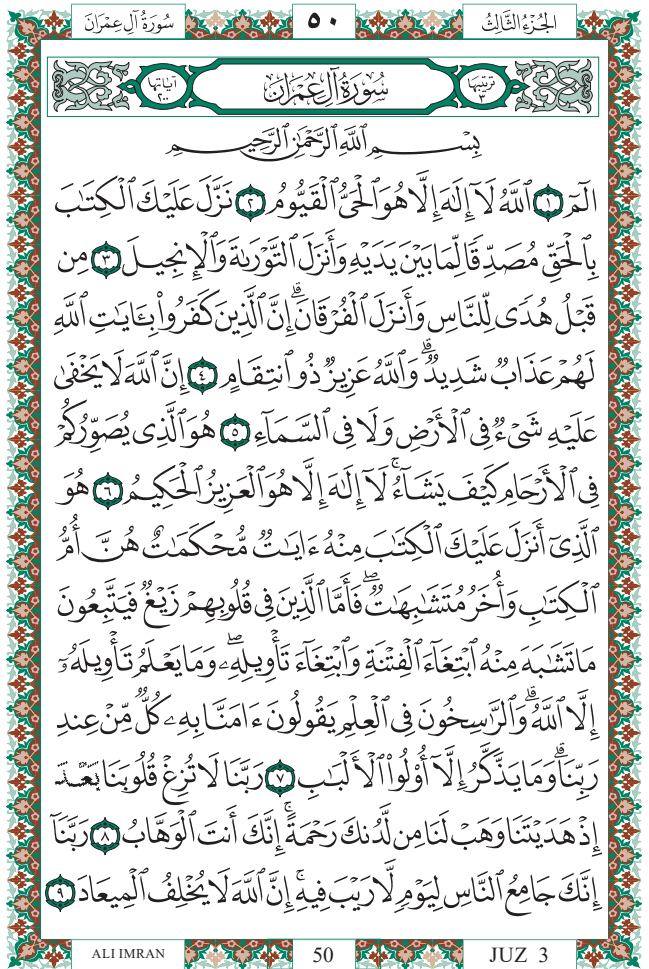 الجُزْءُ الثَّالِثُ ٥٠ سُورَةُ آلِ عِمْرَانَ
ترتيبها ٣ سُورَةُ آلِ عِمْرَانَ آياتها ٢٠٠
بِسْمِ ٱللَّهِ ٱلرَّحْمَٰنِ ٱلرَّحِيمِ
الٓمٓ ١ ٱللَّهُ لَآ إِلَٰهَ إِلَّا هُوَ ٱلْحَىُّ ٱلْقَيُّومُ ٢ نَزَّلَ عَلَيْكَ ٱلْكِتَٰبَ
بِٱلْحَقِّ مُصَدِّقًا لِّمَا بَيْنَ يَدَيْهِ وَأَنزَلَ ٱلتَّوْرَىٰةَ وَٱلْإِنجِيلَ ٣ مِن
قَبْلُ هُدًى لِّلنَّاسِ وَأَنزَلَ ٱلْفُرْقَانَ ۗ إِنَّ ٱلَّذِينَ كَفَرُوا۟ بِـَٔايَٰتِ ٱللَّهِ
لَهُمْ عَذَابٌ شَدِيدٌ ۗ وَٱللَّهُ عَزِيزٌ ذُو ٱنتِقَامٍ ٤ إِنَّ ٱللَّهَ لَا يَخْفَىٰ
عَلَيْهِ شَىْءٌ فِى ٱلْأَرْضِ وَلَا فِى ٱلسَّمَآءِ ٥ هُوَ ٱلَّذِى يُصَوِّرُكُمْ
فِى ٱلْأَرْحَامِ كَيْفَ يَشَآءُ ۚ لَآ إِلَٰهَ إِلَّا هُوَ ٱلْعَزِيزُ ٱلْحَكِيمُ ٦ هُوَ
ٱلَّذِىٓ أَنزَلَ عَلَيْكَ ٱلْكِتَٰبَ مِنْهُ ءَايَٰتٌ مُّحْكَمَٰتٌ هُنَّ أُمُّ
ٱلْكِتَٰبِ وَأُخَرُ مُتَشَٰبِهَٰتٌ ۖ فَأَمَّا ٱلَّذِينَ فِى قُلُوبِهِمْ زَيْغٌ فَيَتَّبِعُونَ
مَا تَشَٰبَهَ مِنْهُ ٱبْتِغَآءَ ٱلْفِتْنَةِ وَٱبْتِغَآءَ تَأْوِيلِهِۦ ۗ وَمَا يَعْلَمُ تَأْوِيلَهُۥٓ
إِلَّا ٱللَّهُ ۗ وَٱلرَّٰسِخُونَ فِى ٱلْعِلْمِ يَقُولُونَ ءَامَنَّا بِهِۦ كُلٌّ مِّنْ عِندِ
رَبِّنَا ۗ وَمَا يَذَّكَّرُ إِلَّآ أُو۟لُوا۟ ٱلْأَلْبَٰبِ ٧ رَبَّنَا لَا تُزِغْ قُلُوبَنَا
إِذْ هَدَيْتَنَا وَهَبْ لَنَا مِن لَّدُنكَ رَحْمَةً ۚ إِنَّكَ أَنتَ ٱلْوَهَّابُ ٨ رَبَّنَآ
إِنَّكَ جَامِعُ ٱلنَّاسِ لِيَوْمٍ لَّا رَيْبَ فِيهِ ۚ إِنَّ ٱللَّهَ لَا يُخْلِفُ ٱلْمِيعَادَ ٩
ALI IMRAN 50 JUZ 3